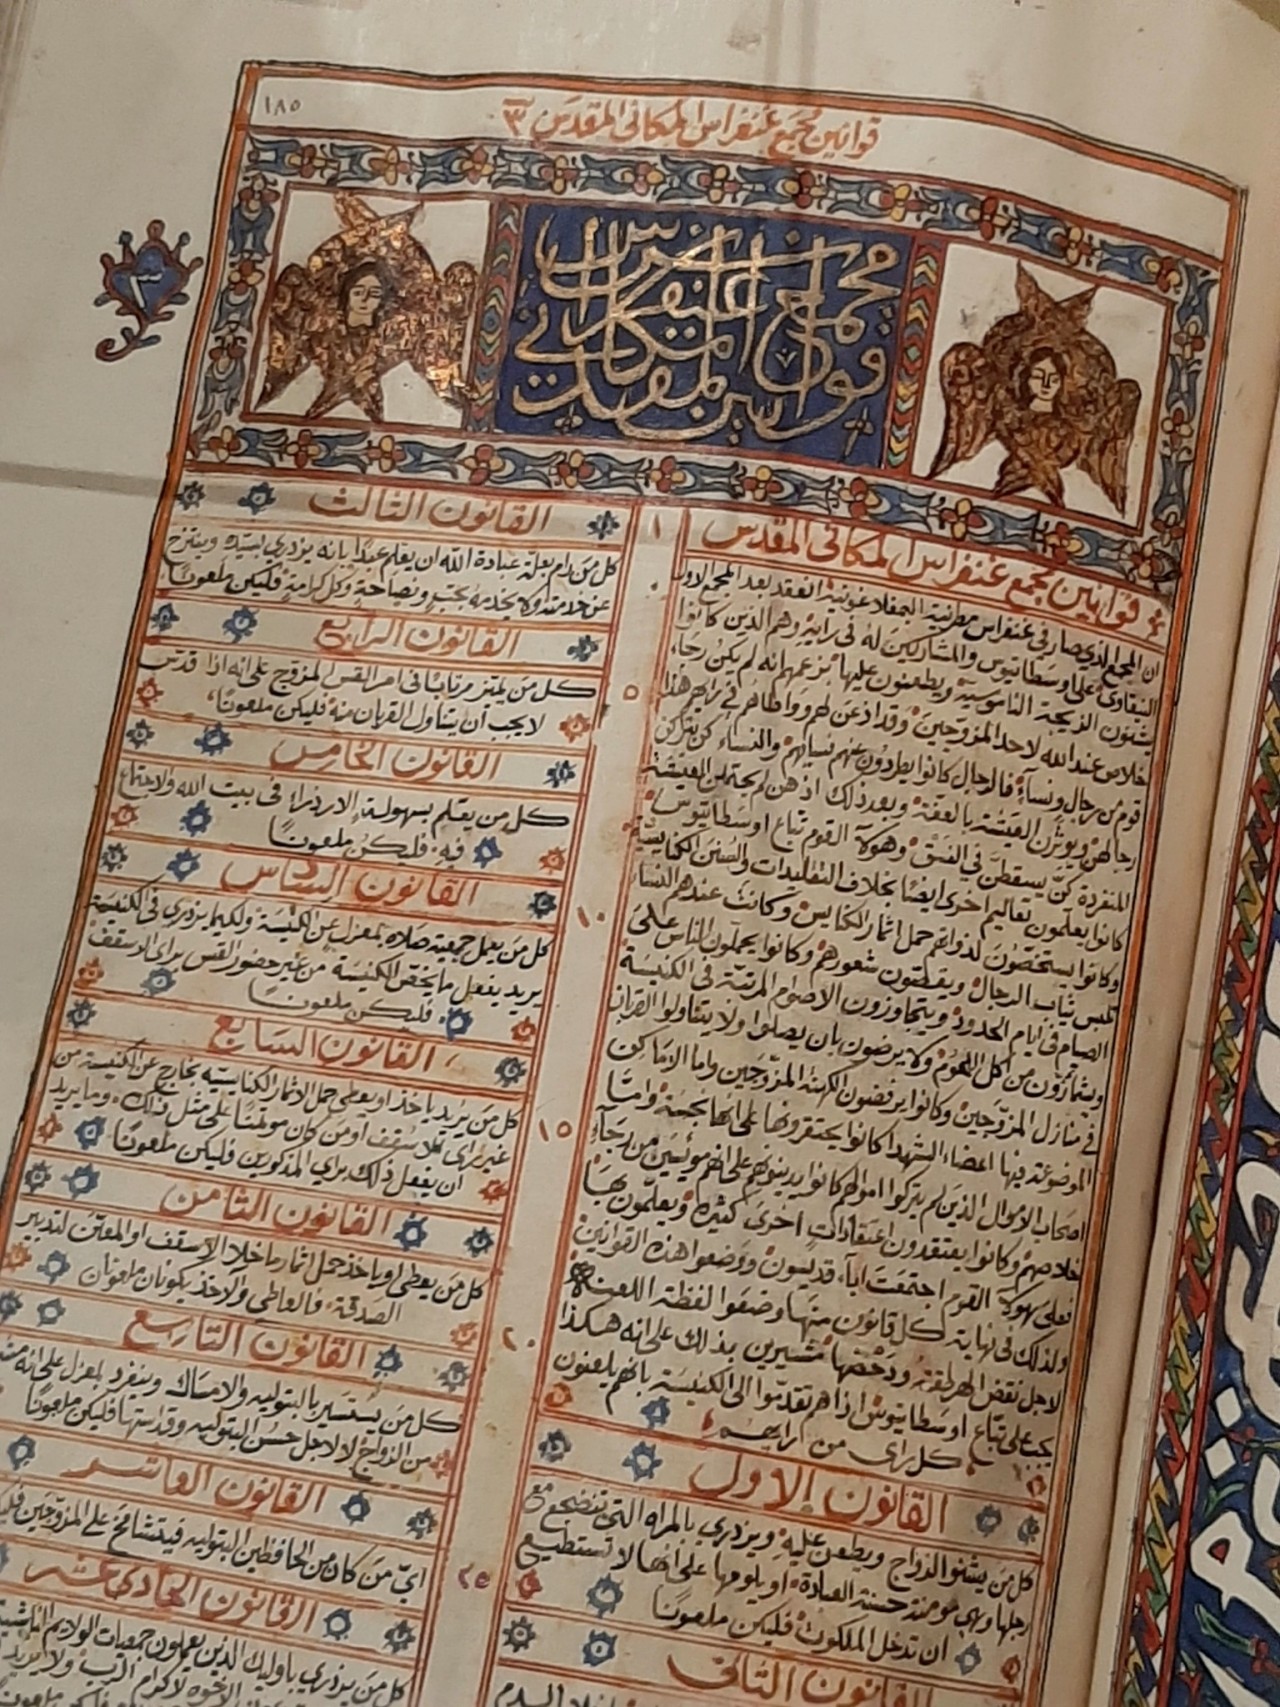 ١٨٥
قوانين مجمع عنفراس المكاني المقدس ٣
٣
قوانين مجمع عنفراس المكاني المقدس
قوانين مجمع عنفراس المكاني المقدس
ان المجمع الذي صار في عنفراس مطرنية البمفلاغونية انعقد بعد المجمع الاول
النيقاوي على اوسطاتيوس والمشاركين له في رايه وهم الذين كانوا
يشنئون الزيجة الناموسية ويطعنون عليها بزعمهم انه لم يكن رجاء
خلاص عند الله لاحد المزوجين وقد اذعن لهم وواطاهم في رايهم هذا
قوم من رجال ونساء فالرجال كانوا يطردون عنهم نساهم والنساء كن يتركن
رجالهن ويوثرن العيشة بالعفة وبعد ذلك اذ هن لم يحتملن العيشة
المنفردة كن يسقطن في الفسق وهولاء القوم تباع اوسطاتيوس
كانوا يعلمون تعاليم اخرى ايضا بخلاف التقليدات والسنن الكنايسية
وكانوا يستخصون لذواتهم حمل اثمار الكنايس وكانت عندهم النساء
تلبس ثياب الرجال ويقطعون شعورهم وكانوا يحملون الناس على
الصيام في ايام الحدود ويتجاوزون الاصوام المرتبة في الكنيسة
ويشمازون من اكل اللحوم ولا يرضون بان يصلوا ولا يتناولوا القربان
في منازل المزوجين وكانوا يرفضون الكهنة المزوجين واما الاماكن
الموضوعة فيها اعضاء الشهدا كانوا يحتقرونها على انها نجسة واما
اصحاب الاموال الذين لم يتركوا اموالهم كانوا يدينونهم على انهم مويسين من رجاء
خلاصهم وكانوا يعتقدون اعتقادات اخرى كثيرة ويعلمون بها
فعلى هولاء القوم اجتمعت اباء قديسون ووضعوا هذه القوانين
ولذلك في نهاية كل قانون منها وضعوا لفظة اللعنة
لاجل نقض الهرطقة ودحضها مشيرين بذلك على انه هكذا
يجب على تباع اوسطاتيوس اذا هم تقدموا الى الكنيسة بانهم يلعنون
كل راي من ارايهم
القانون الاول
كل من يشنو الزواج ويطعن عليه ويزدري بالمراه التي تنضجع مع
رجلها وهي مومنة حسنة العبادة او يلومها على انها لا تستطيع
ان تدخل الملكوت فليكن ملعونا
القانون الثاني
١
٥
١٠
١٥
٢٠
٢٥
القانون الثالث
كل من رام بعلة عبادة الله ان يعلم عبدا بانه يزدري بسيده وينتزح
عن خدمته ولا يخدمه بحب ونصاحة وكل كرامة فليكن ملعونا
القانون الرابع
كل من يمتز مرتابا في امر القس المزوج على انه اذا قدس
لا يجب ان يتناول القربان منه فليكن ملعونا
القانون الخامس
كل من يعلم بسهولة الازدراء في بيت الله والاجتماع
فيه فليكن ملعونا
القانون السادس
كل من يعمل جمعية صلاه بمعزل عن الكنيسة ولكيما يزدري في الكنيسة
يريد يفعل ما يختص الكنيسة من غير حضور القس براي الاسقف
فليكن ملعونا
القانون السابع
كل من يريد ياخذ او يعطي حمل الاثمار الكنايسيه بخارج عن الكنيسة من
غير راي الاسقف او من كان موتمنا على مثل ذلك وما يريد
ان يفعل ذلك براي المذكورين فليكن ملعونا
القانون الثامن
كل من يعطي او ياخذ حمل اثمار ما خلا الاسقف او المعين لتدبير
الصدقة فالعاطي والاخذ يكونان ملعونان
القانون التاسع
كل من يستسير بالبتوليه والامساك وينفرد بمعزل على انه
من الزواج لا لاجل حسن البتوليه وقداستها فليكن ملعونا
القانون العاشر
اي من كان من الحافظين البتوليه فيتشامخ على المزوجين
القانون الحادي عشر
كل من يزدري باوليك الذين يعملون جمعيات الولايم
الاخوه لاكرام الرب ولا